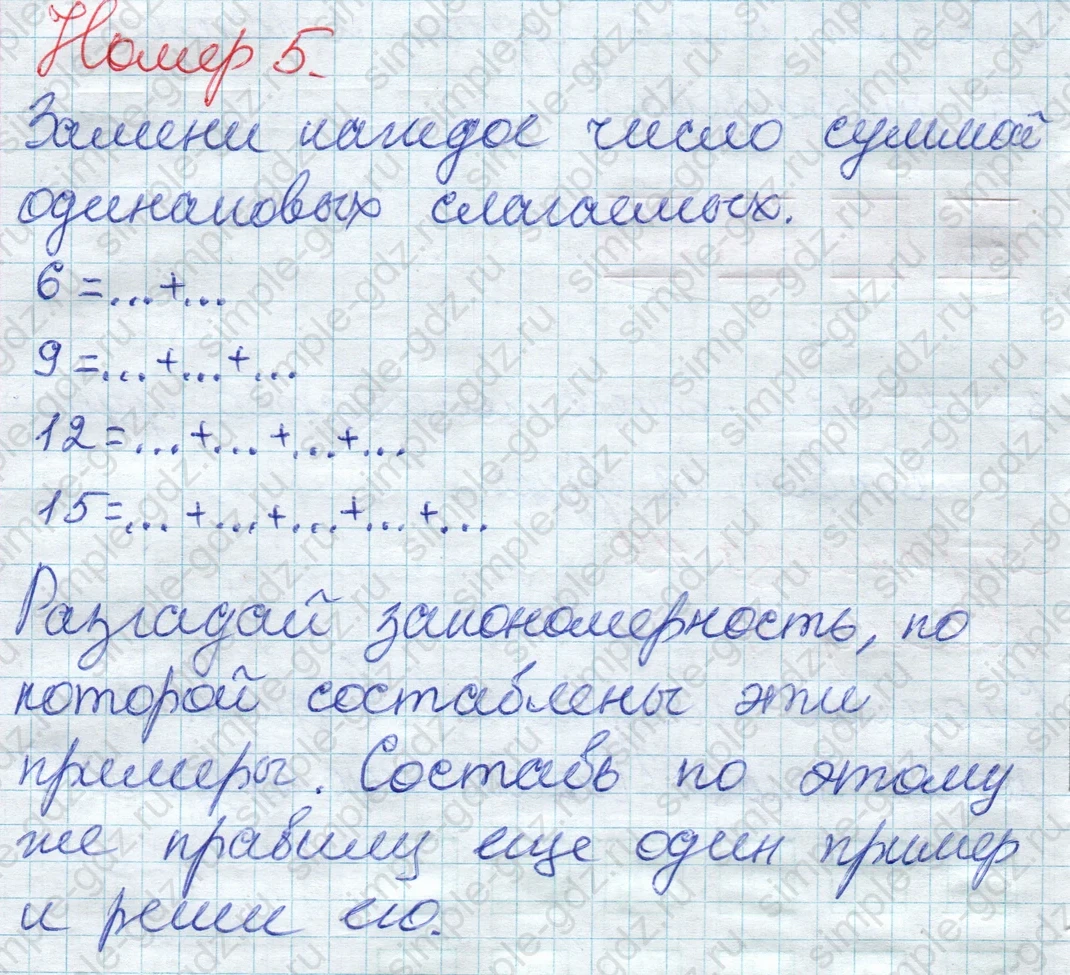 Номер 5.
Замени каждое число суммой
одинаковых слагаемых.
6 =...+...
9 =...+...+...
12 =...+...+...+...
15 =...+...+...+...+...
Разгадай закономерность, по
которой составлены эти
примеры. Составь по этому
же правилу еще один пример
и реши его.
simple-gdz.ru